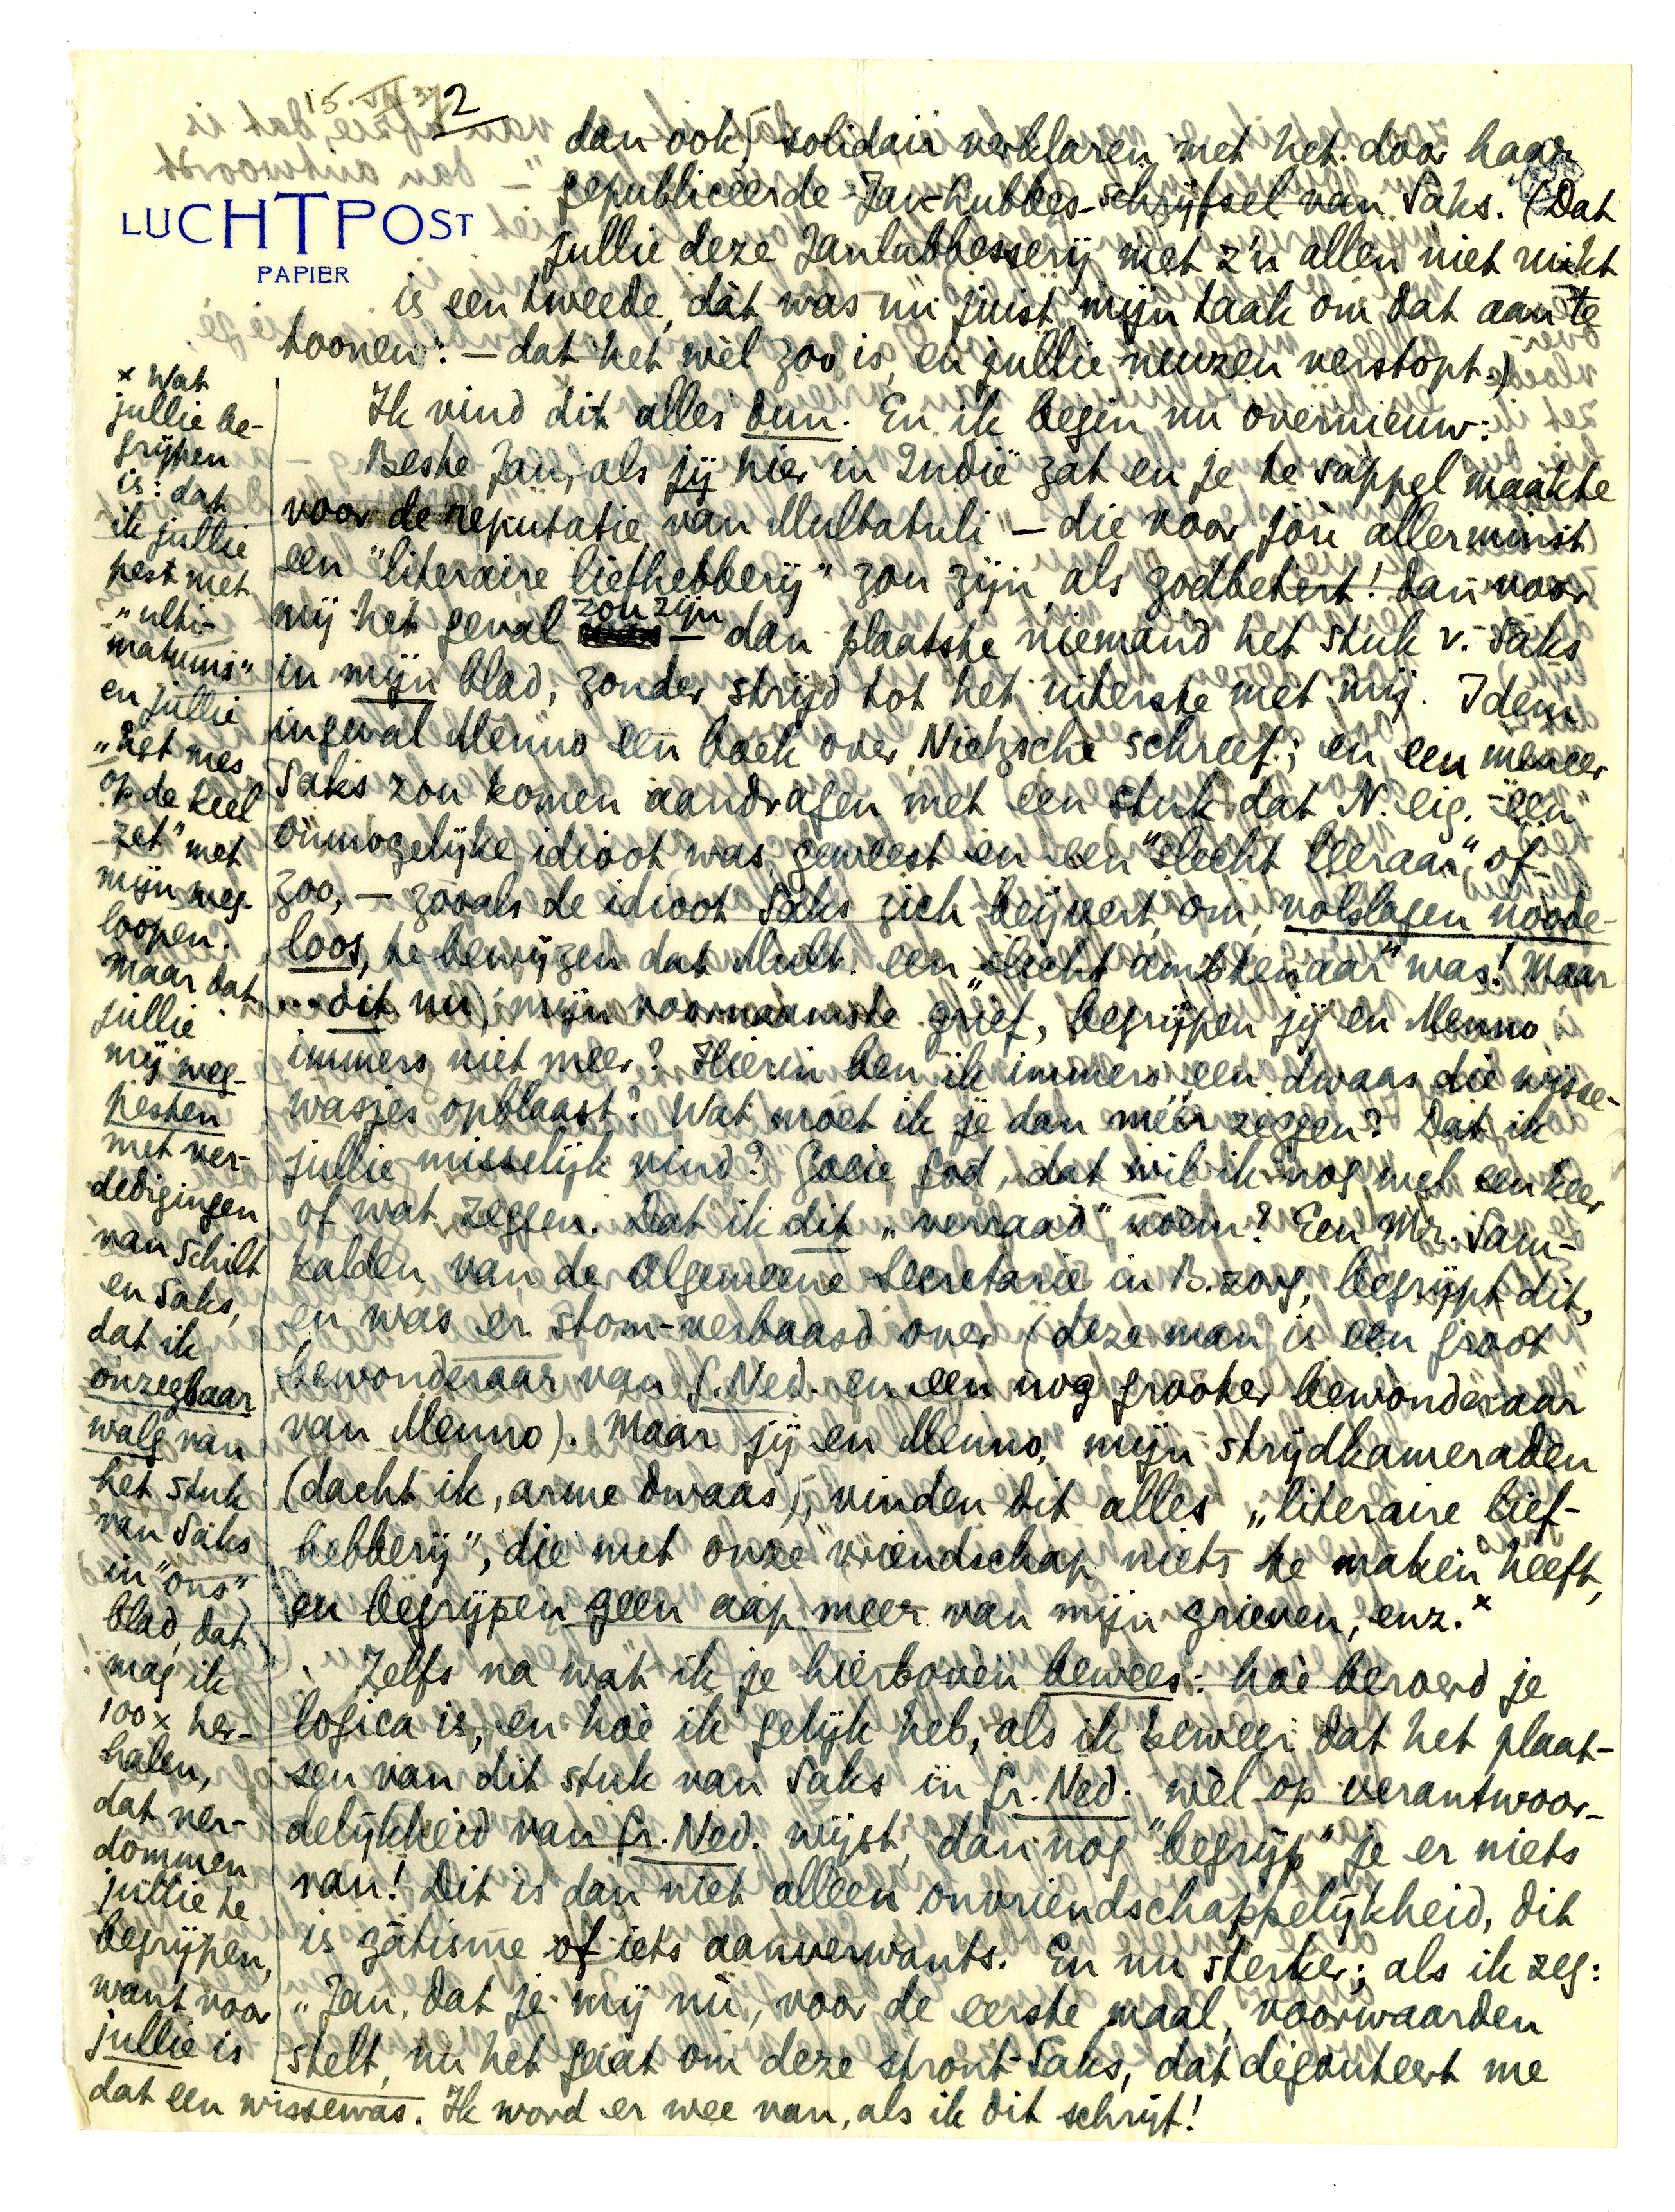 15.VII 37
2
LUCHTPOST
PAPIER
dan ook) solidair verklaren met het door haar
gepubliceerde Jan-hubbes-schrijfsel van Saks. (Dat
jullie deze Janlubbesserij met z'n allen niet rickt
is een tweede, dàt was nu juist mijn taak om dat aan te
toonen: — dat het wèl zoo is, en jullie neuzen verstopt.)
Ik vind dit alles dun. En ik begin nu overnieuw:
Beste Jan, als jij hier in Indië zat en je te sappel maakte
voor de reputatie van Multatuli — die voor jòu allerminst
een "literaire liefhebberij" zou zijn, als godbetert! dan voor
mij het geval zou zijn — dan plaatste niemand het stuk v. Saks
in mijn blad, zonder strijd tot het uiterste met mij. Idem
ingeval Menno een boek over Nietzsche schreef; en een meneer
Saks zou komen aandragen met een stuk dat N. eig. een
onmogelijke idioot was geweest en een "slecht leeraar" of
zoo, — zooals de idioot Saks zich beijvert, om, volslagen noode-
loos, te bewijzen dat Mult. een „slecht ambtenaar" was! Maar
... dit nu, mijn voornaamste grief, begrijpen jij en Menno
immers niet meer? Hierin ben ik immers een dwaas die wisse-
wasjes opblaast? Wat moet ik je dan méér zeggen? Dat ik
jullie misselijk vind? Goeie god, dat wil ik nog wel een keer
of wat zeggen. Dat ik dit „verraad" noem? Een Mr. Sam-
kalden van de Algemeene Secretarie in B.zorg, begrijpt dit,
en was er stom-verbaasd over (deze man is een groot
bewonderaar van G.Ned. en een nog grooter bewonderaar
van Menno). Maar jij en Menno, mijn strijdkameraden
(dacht ik, arme dwaas), vinden dit alles „literaire lief-
hebberij", die met onze vriendschap niets te maken heeft,
en begrijpen geen aap meer van mijn grieven, enz.×
Zelfs na wat ik je hierboven bewees: hoè beroerd je
logica is, en hoè ik gelijk heb, als ik beweer dat het plaat-
sen van dit stuk van Saks in Gr.Ned. wèl op verantwoor-
delijkheid van Gr.Ned. wijst, dan nog "begrijp" je er niets
van! Dit is dan niet alleen onvriendschappelijkheid, dit
is zatisme of iets aanverwants. En nu sterker; als ik zeg:
„Jan, dat je mij nù, voor de eerste maal, voorwaarden
stelt, nu het gaat om deze stront-Saks, dat degouteert me
× Wat
jullie be-
grijpen
is: dat
ik jullie
pest met
„ulti-
matums"
en jullie
„het mes
op de keel
zet" met
mijn weg-
loopen.
Maar dat
jullie
mij weg-
pesten
met ver-
dedigingen
van Schilt
en Saks,
dat ik
onzegbaar
walg van
het stuk
van Saks
in "ons"
blad, dat
mag ik
100 x her-
halen,
dat ver-
dommen
jullie te
begrijpen,
want voor
jullie is
dat een wissewas. Ik word er wee van, als ik dit schrijf!